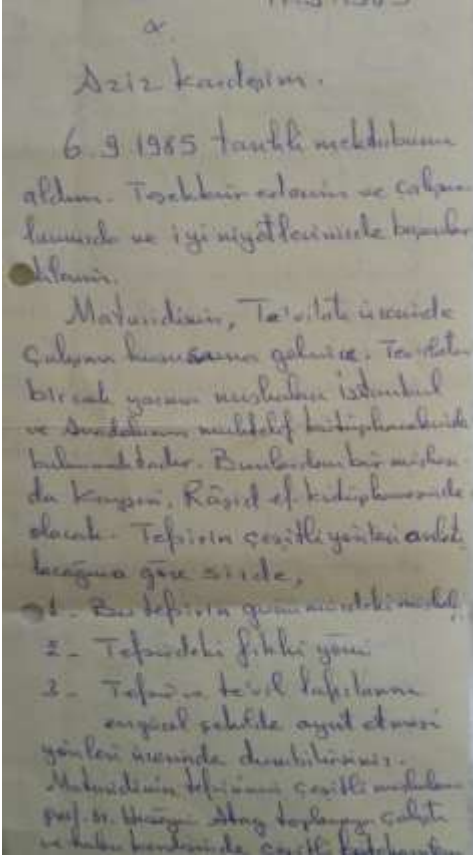 Aziz kardeşim.
6.9.1985 tarihli mektubunu
aldım. Teşekkür ederim ve çalışma
larınızda ve iyi niyetlerinizde başarılar
dilerim.
Maturidinin, Te'vilatı üzerinde
çalışma hususuna gelince. Te'vilatın
bir çok yazma nushaları İstanbul
ve Anadolunun muhtelif kütüphanelerinde
bulunmaktadır. Bunlardan bir nusha
da Kayseri, Râşid ef. kütüphanesinde
olacak. Tefsirin çeşitli yönleri anlatı
lacağına göre sizde,
1- Bu tefsirin günümüzdeki
2- Tefsirdeki fıkhi yönü
3- Tefsir ve te'vil
şekilde ayırt etmesi
yönleri üzerinde durabilirsiniz.
Maturidinin tefsirinin çeşitli nushaları
prof. Dr. Hüseyin Atay toplamaya çalıştı
ve çeşitli